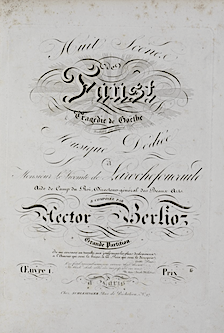 Huit Scenes
de
Faust
Tragédie de Goethe
Musique Dédiée
à
Monsieur le Vicomte de Larochefoucauld
Aide de Camp du Roi, Directeur général des Beaux Arts
& COMPOSÉE PAR
Hector Berlioz
Grande Partition
Œuvre 1. Prix
à Paris